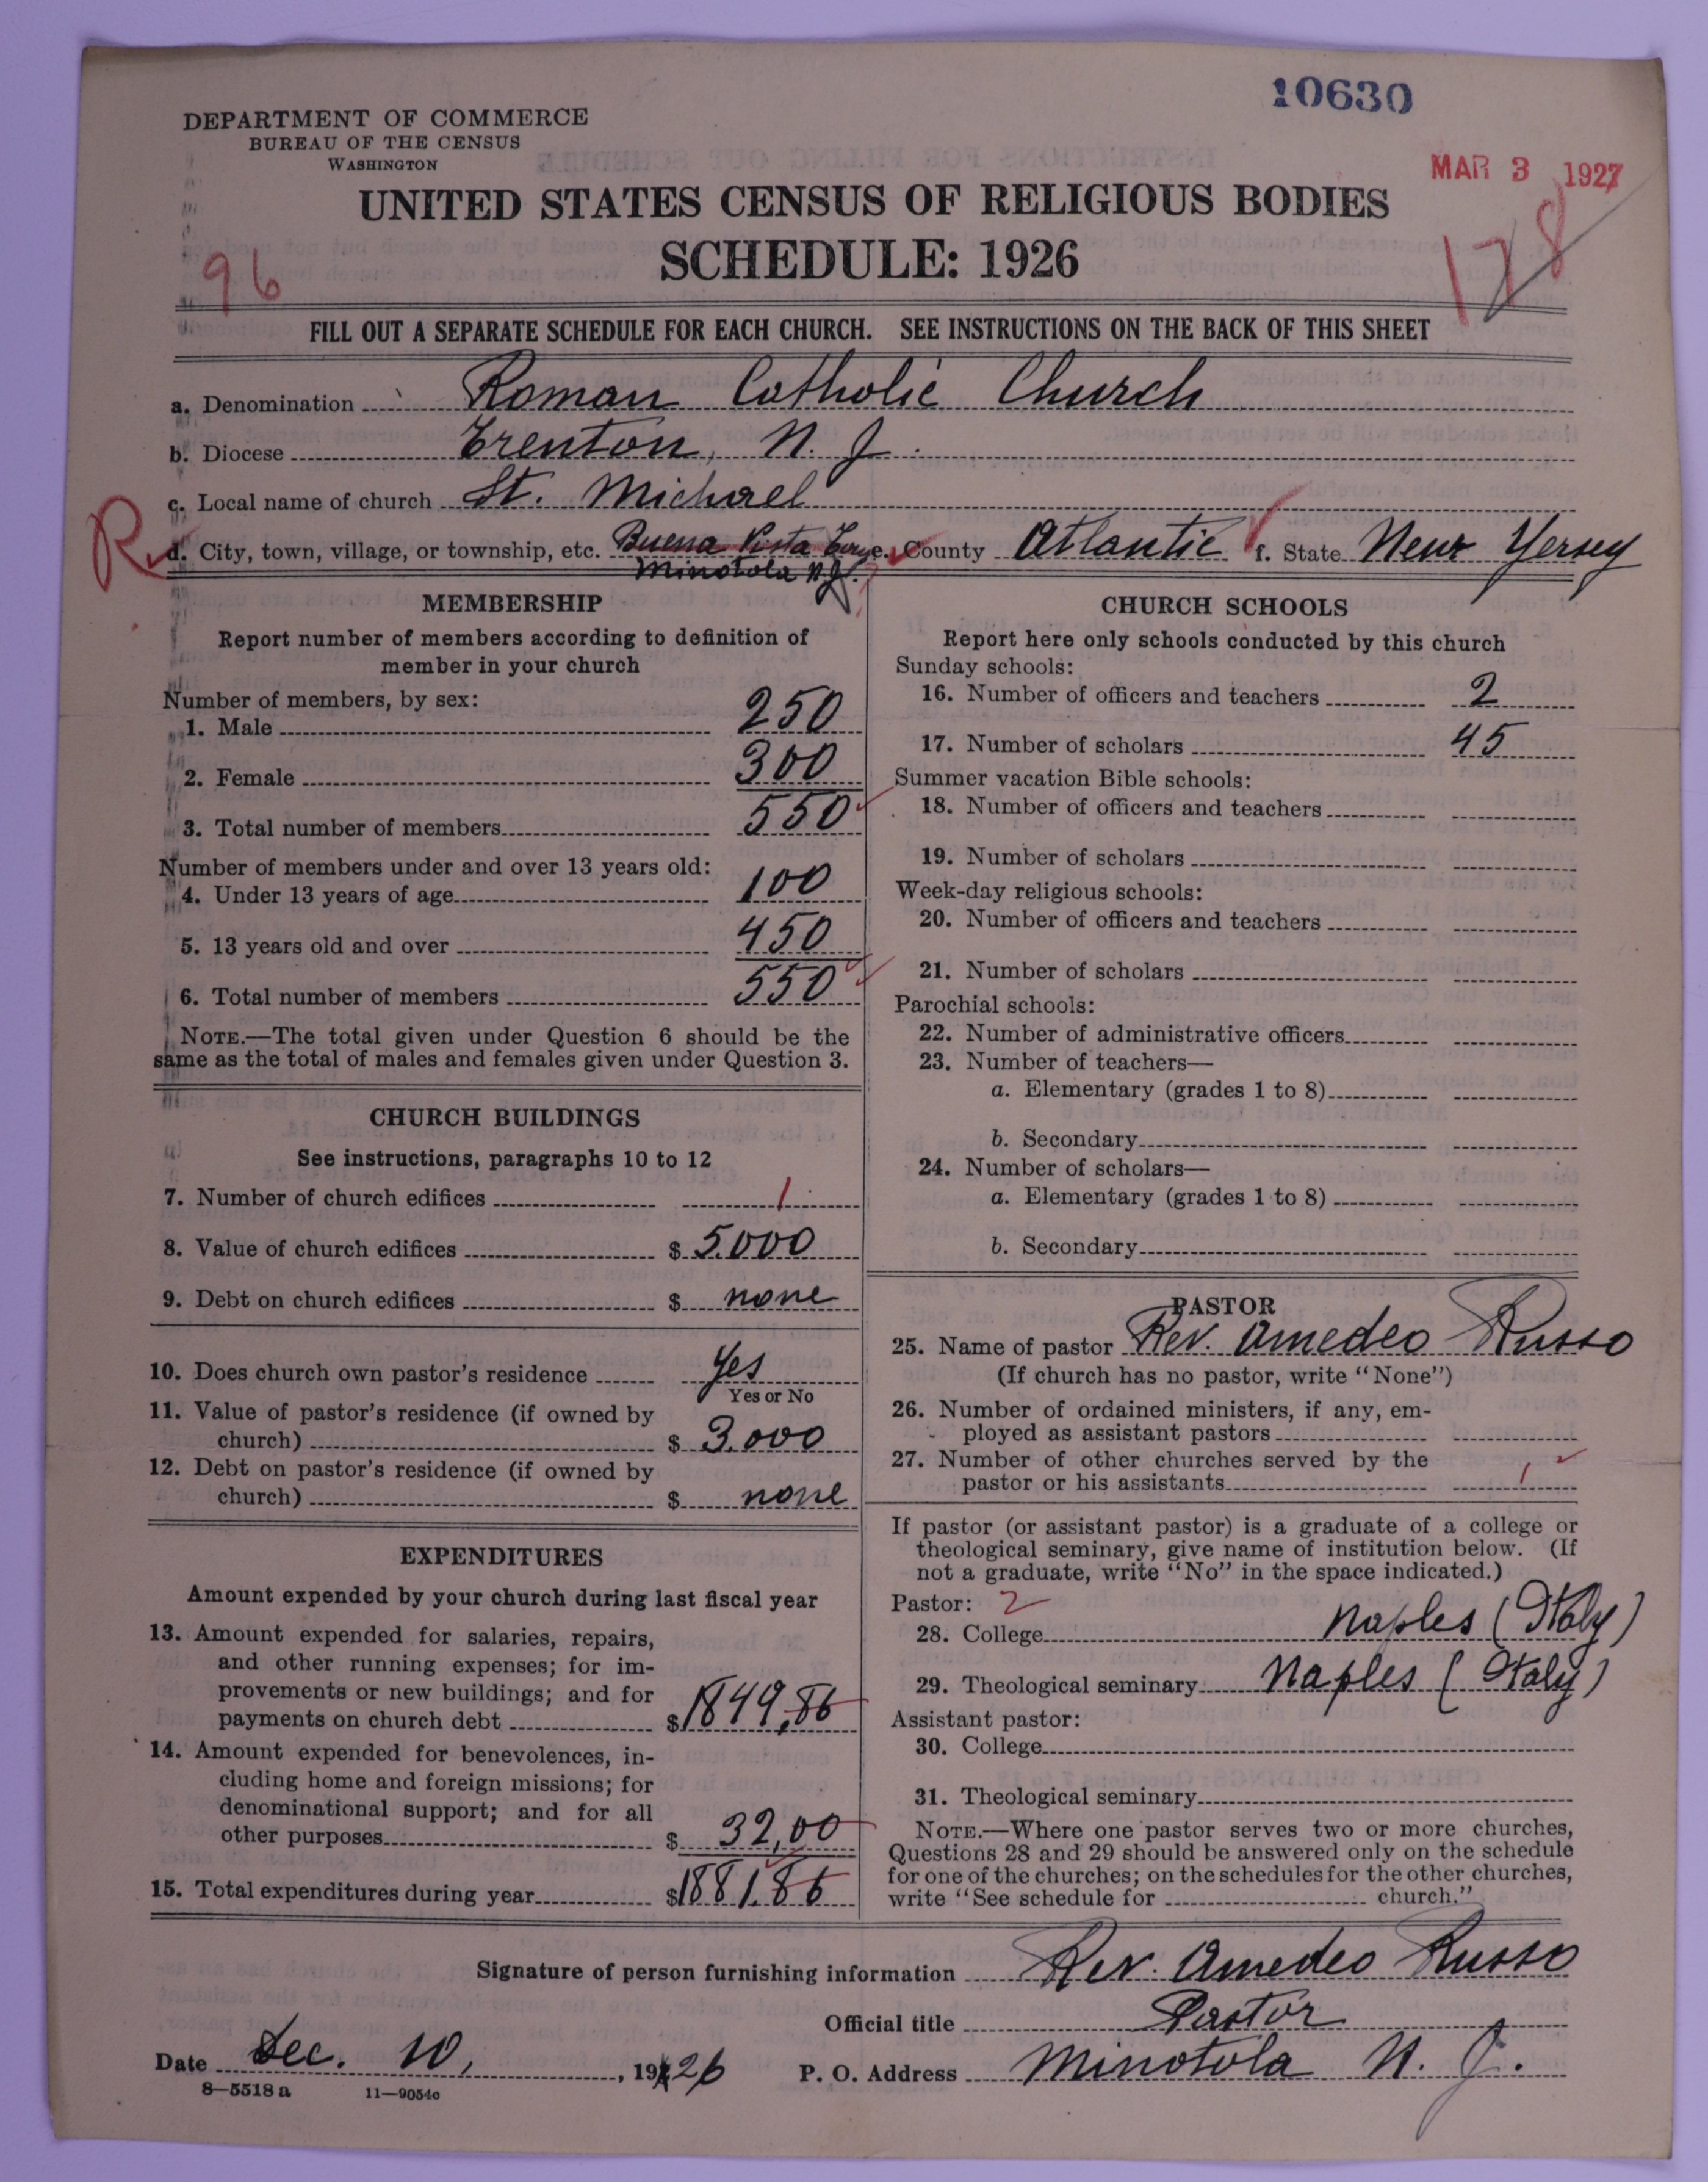 10630
DEPARTMENT OF COMMERCE
BUREAU OF THE CENSUS
WASHINGTON
MAR 3 1927
UNITED STATES CENSUS OF RELIGIOUS BODIES
SCHEDULE: 1926
96
178
FILL OUT A SEPARATE SCHEDULE FOR EACH CHURCH. SEE INSTRUCTIONS ON THE BACK OF THIS SHEET
a. Denomination Roman Catholic Church
b. Diocese Trenton, N. J.
c. Local name of church St. Michael
R d. City, town, village, or township, etc. Buena Vista e. County Atlantic f. State New Yersey
Minotola N.J.
MEMBERSHIP
Report number of members according to definition of
member in your church
Number of members, by sex:
1. Male 250
2. Female 300
3. Total number of members 550
Number of members under and over 13 years old:
4. Under 13 years of age 100
5. 13 years old and over 450
6. Total number of members 550
NOTE.—The total given under Question 6 should be the
same as the total of males and females given under Question 3.
CHURCH BUILDINGS
See instructions, paragraphs 10 to 12
7. Number of church edifices 1
8. Value of church edifices $ 5.000
9. Debt on church edifices $ none
10. Does church own pastor's residence Yes
Yes or No
11. Value of pastor's residence (if owned by
church) $ 3.000
12. Debt on pastor's residence (if owned by
church) $ none
EXPENDITURES
Amount expended by your church during last fiscal year
13. Amount expended for salaries, repairs,
and other running expenses; for im-
provements or new buildings; and for
payments on church debt $1849,86
14. Amount expended for benevolences, in-
cluding home and foreign missions; for
denominational support; and for all
other purposes $ 32,00
15. Total expenditures during year $1881.86
CHURCH SCHOOLS
Report here only schools conducted by this church
Sunday schools:
16. Number of officers and teachers 2
17. Number of scholars 45
Summer vacation Bible schools:
18. Number of officers and teachers
19. Number of scholars
Week-day religious schools:
20. Number of officers and teachers
21. Number of scholars
Parochial schools:
22. Number of administrative officers
23. Number of teachers—
a. Elementary (grades 1 to 8)
b. Secondary
24. Number of scholars—
a. Elementary (grades 1 to 8)
b. Secondary
PASTOR
25. Name of pastor Rev. Amedeo Russo
(If church has no pastor, write "None")
26. Number of ordained ministers, if any, em-
ployed as assistant pastors
27. Number of other churches served by the
pastor or his assistants 1
If pastor (or assistant pastor) is a graduate of a college or
theological seminary, give name of institution below. (If
not a graduate, write "No" in the space indicated.)
Pastor: 2
28. College Naples (Italy)
29. Theological seminary Naples (Italy)
Assistant pastor:
30. College
31. Theological seminary
NOTE.—Where one pastor serves two or more churches,
Questions 28 and 29 should be answered only on the schedule
for one of the churches; on the schedules for the other churches,
write "See schedule for church."
Signature of person furnishing information Rev. Amedeo Russo
Official title Pastor
Date Dec. 10, 1926 P. O. Address Minotola N. J.
8—5518 a 11—9054c